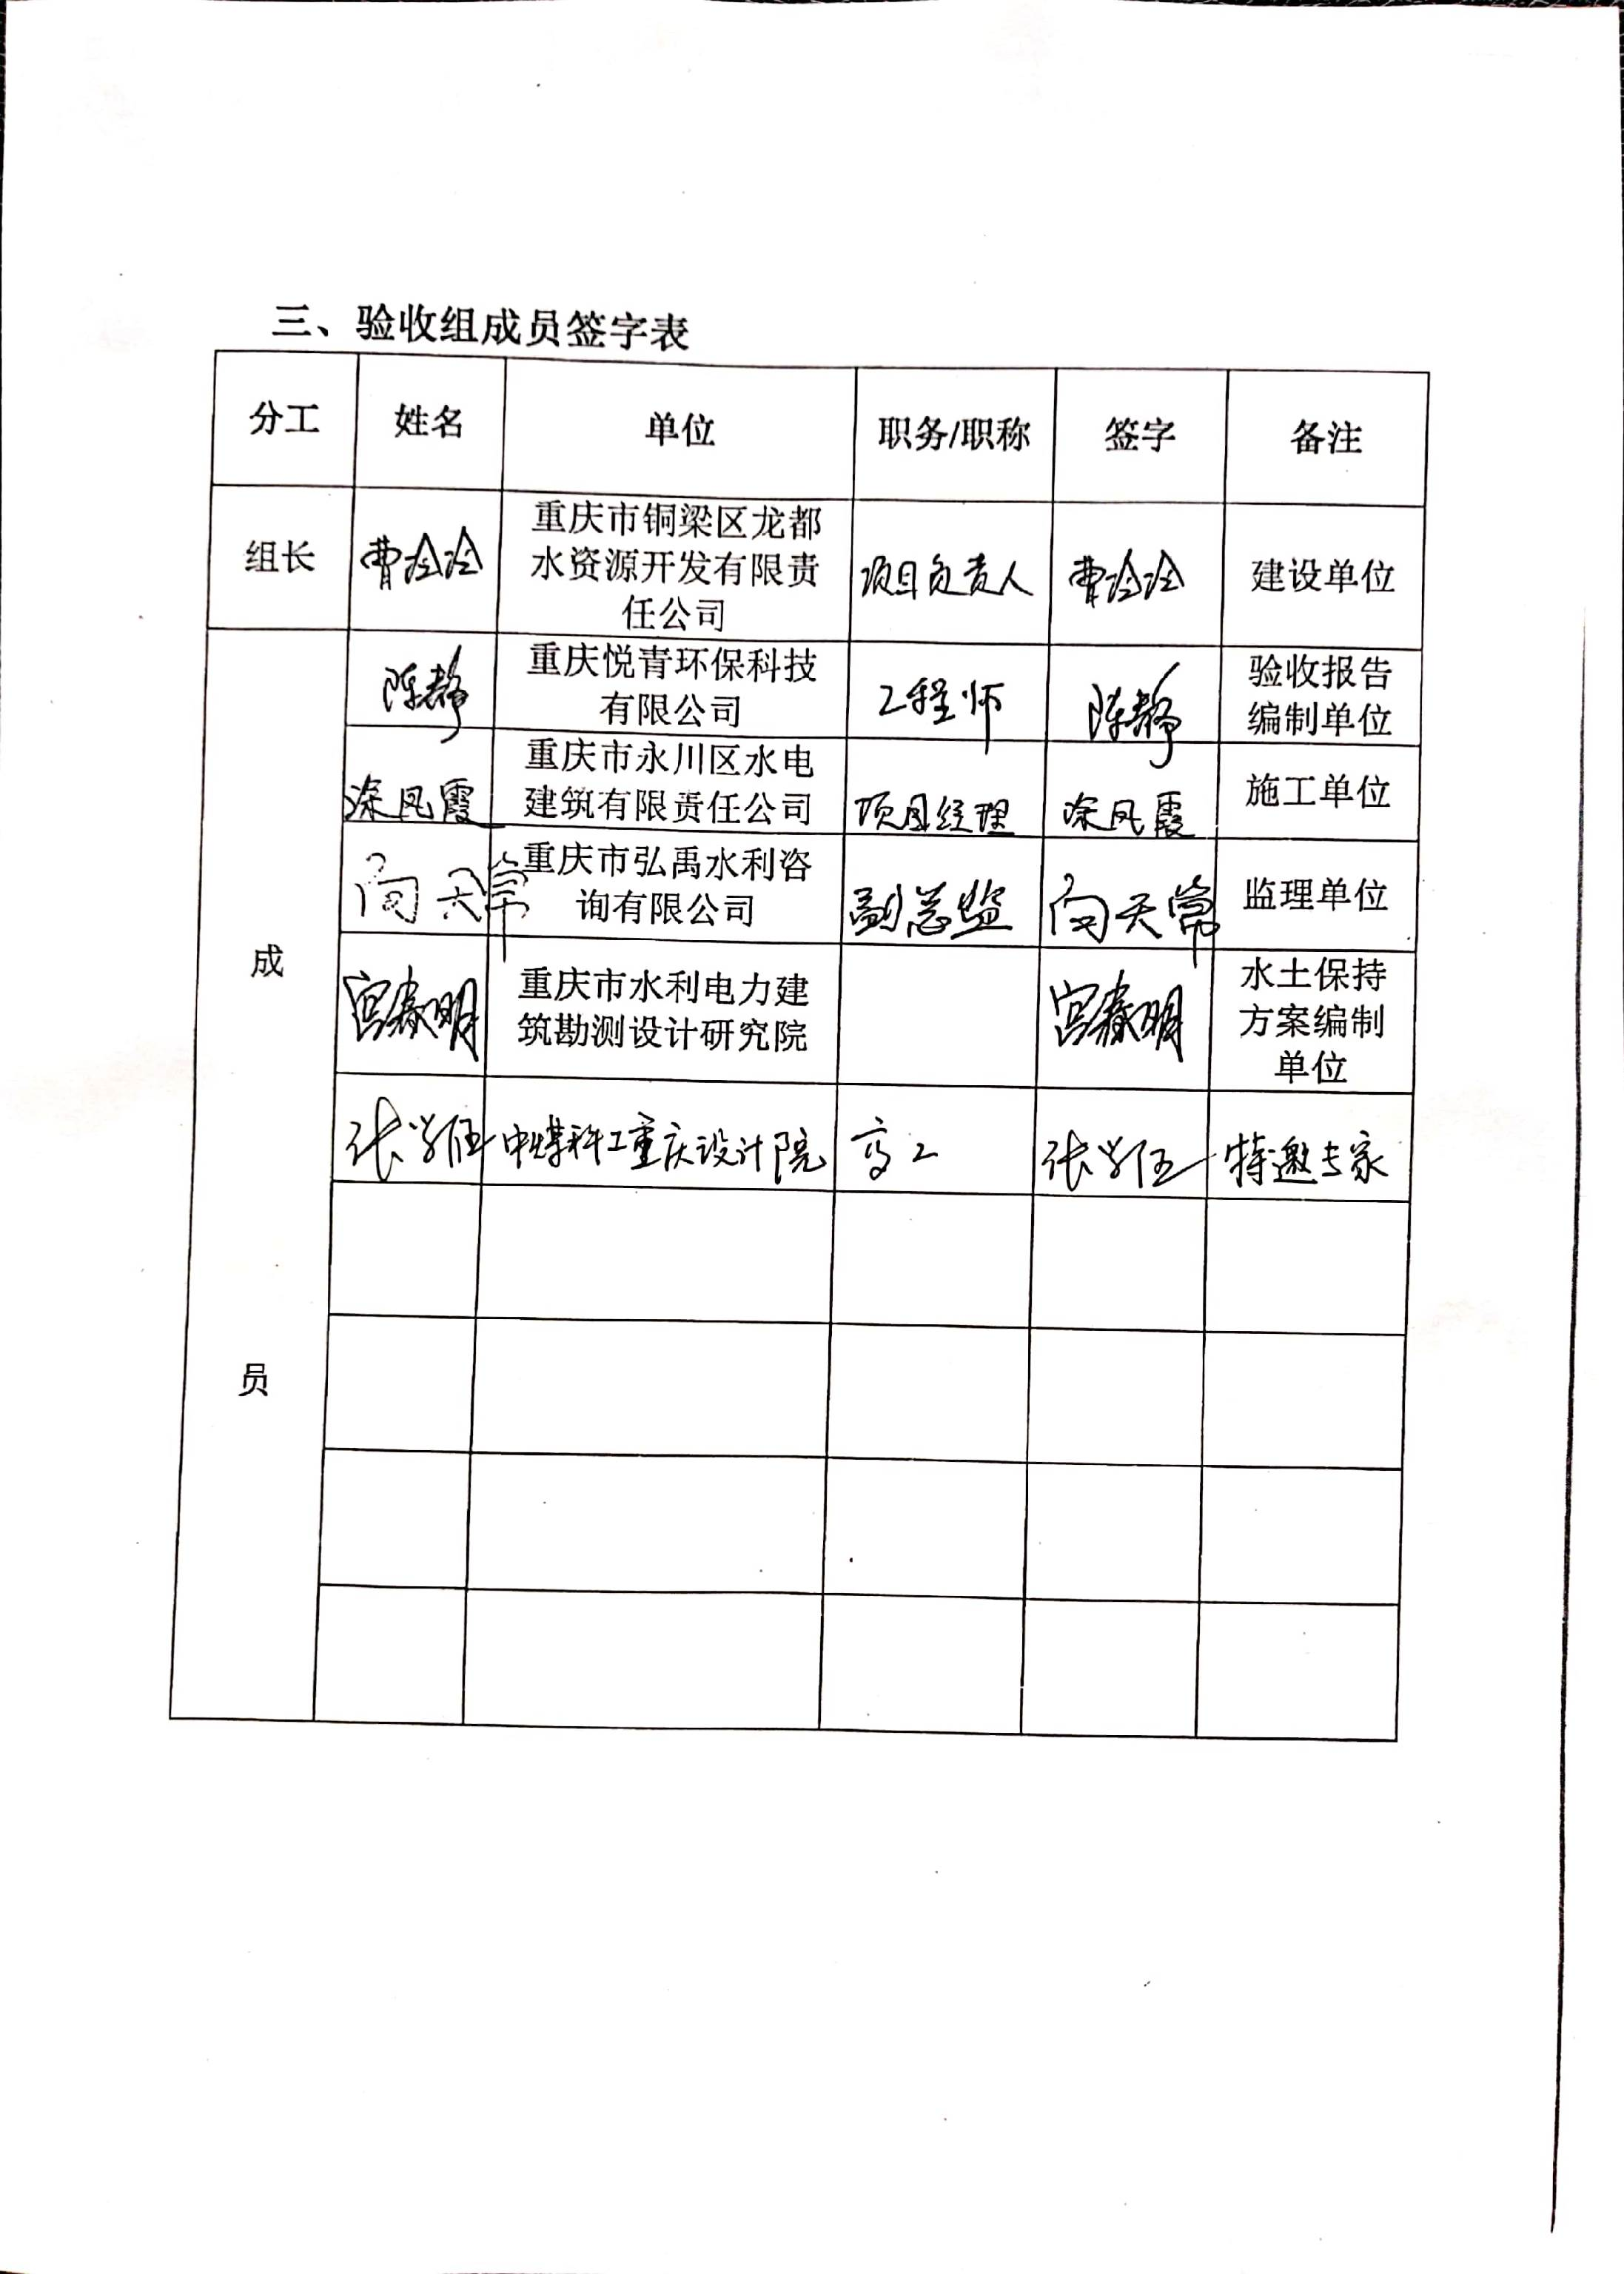 三、验收组成员签字表
分工 姓名 单位 职务/职称 签字 备注
组长 曹冷冷 重庆市铜梁区龙都
水资源开发有限责
任公司 项目负责人 曹冷冷 建设单位
成员
陈静 重庆悦青环保科技
有限公司 工程师 陈静 验收报告
编制单位
涂凤霞 重庆市永川区水电
建筑有限责任公司 项目经理 涂凤霞 施工单位
向天常 重庆市弘禹水利咨
询有限公司 副总监 向天常 监理单位
宫春明 重庆市水利电力建
筑勘测设计研究院 宫春明 水土保持
方案编制
单位
张学伍 中煤科工重庆设计院 高工 张学伍 特邀专家